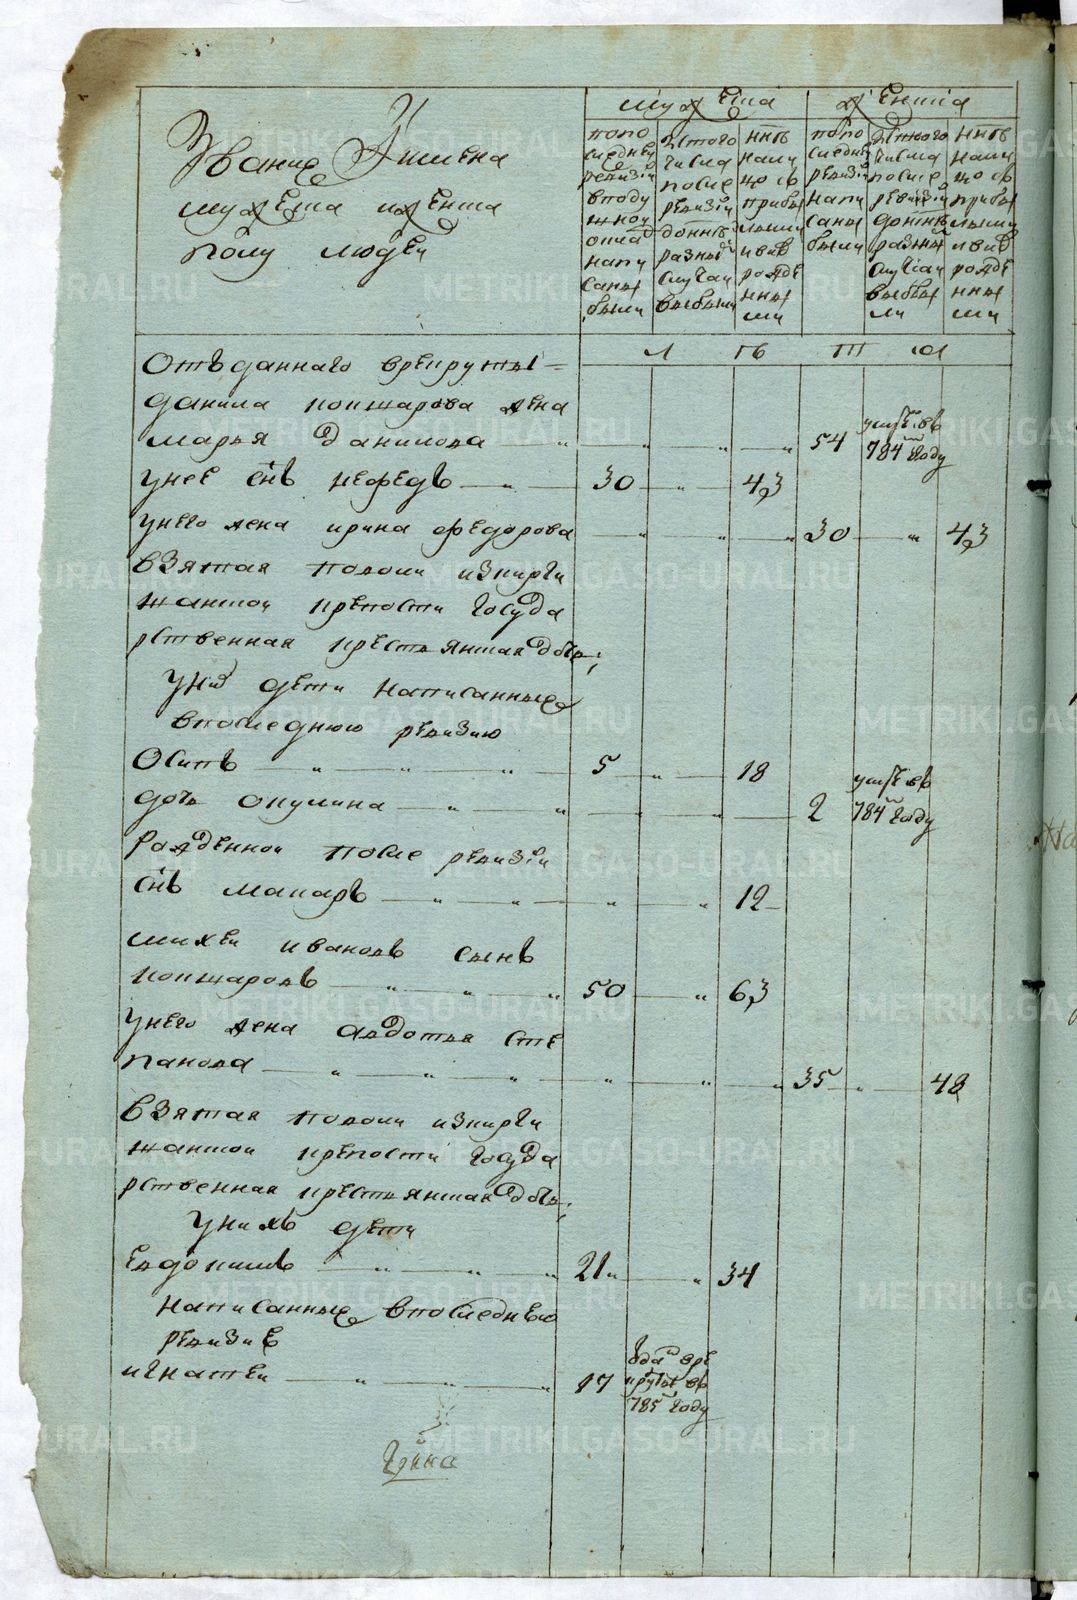 Звание Имена
мужеска и женска
полу людей
мужеска
по по
следней
ревизии
в поду
шной
оклад
напи
саны
были
Из того
числа
после
ревизии
до нне
разны
случаи
выбыли
ннѣ
нали
цо съ
прибы
лыми
и вне
рожде
нны
ми
женска
по по
следне
ревизии
напи
саны
были
Из того
числа
после
ревизии
до ннѣ
разны
случаи
выбы
ли
ннѣ
нали
цо съ
прибы
лыми
и вне
рожде
нны
ми
Л ѣ т а
Отъданнаго врекруты
данила кокшарова жена
марья данилова 54 умре въ 784м году
унее снъ нефедъ 30 43
унего жена ирина федорова 30 43
взятая тоямш изкирги
шанской крепости госуда
рственная крестьянская дочь;
уни дети написанные
впоследнюю ревизию
Осипъ 5 18
дочь окулина 2 умре въ 784м году
рожденной после ревизии
снъ макаръ 12
михей ивановъ сынъ
кокшаровъ 50 63
унего жена авдотья сте
панова 35 48
взятая изкирги
шанской крепости госуда
рственная крестьянская дочь;
унихъ дети
евдокимъ 21 34
написанные впоследнюю
ревизие
игнатей 17 зда вре круты въ 785 году
METRIKI.GASO-URAL.RU